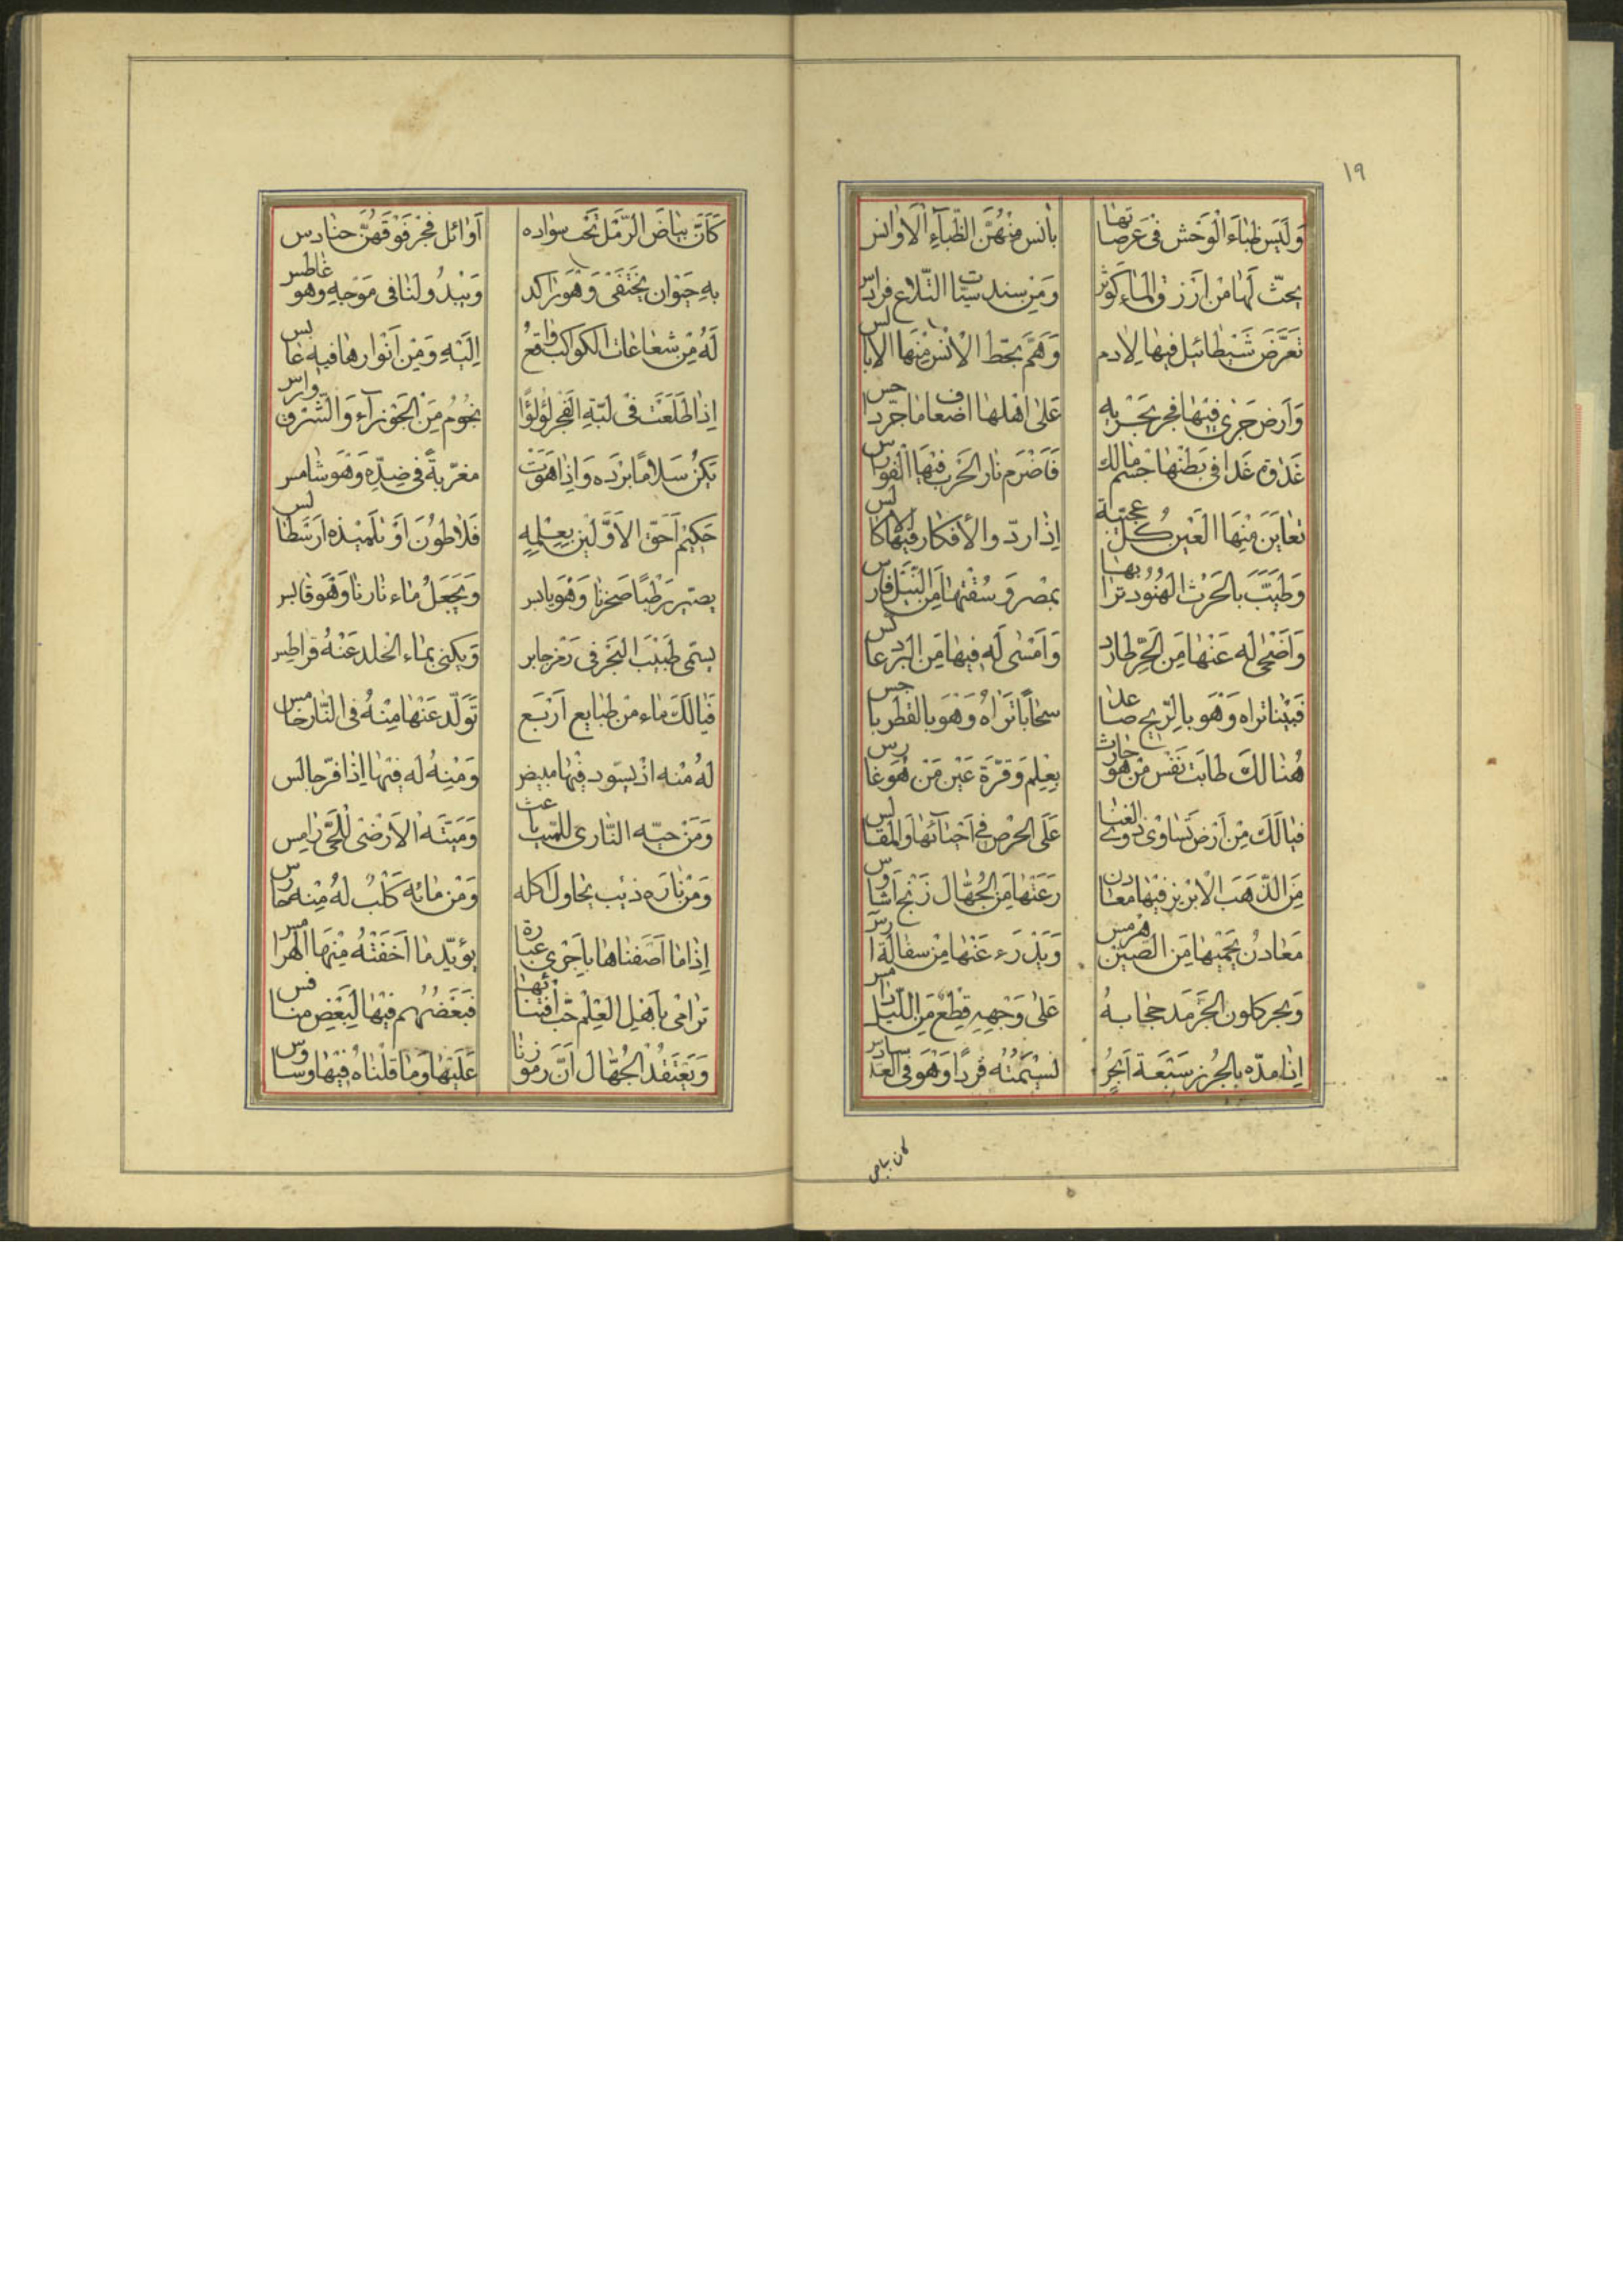 ١٩
وَلَيَس ظباءَ الْوَحْش فى عَرصاتها بانس منْهُنَّ الظّباءِ الاَوانس
يحثّ لَهٰا مْن اَرْزِ والمٰاءِ كَوْثر وَمَن سندسيّات التّلاع فرادس
تَعرَّضَ شَيْطٰائيل فيهٰا لآدم وَهَمَّ بحّط الاْنْس مِنْهَا الابالس
وَاَرض جَرٰى فيْهٰا فجر بجَرْيِه عَلىٰ اهْلهٰا اضعاف مٰا جرّ داحس
غَدٰا فى بَطْنهٰا جْسَم مٰالك فَاَضْرَم نار الحَرب فيْهَا الفوارس
تعٰايَن مِنْهَا الَعْين كُلّ عجيَبة اِذٰا ردّد والاَفكار فيْهٰا
وَطَيَّبَ بالحَرْث الهُنُود ترٰابهٰا بمْصر وَسُقْتهٰا مَن النّيَل فارس
وَاَضْحىٰ لَه عَنْهٰا مَن الحَرّ طارد وَاَمْسٰى لَه فيهٰا مَن الَبرد عاكس
فَبيْنا تراه وَهْوَ بالرّيح صاعد سحٰابًا تَرٰاهُ وَهْوَ بالقطر باجس
هُنٰا لكَ طابَت نَفْس مَن هوَ حٰارث بعْلم وَقرّةَ عَيْن مَن هُوَ غارس
فيا لَكَ مِن اَرْض تَساوٰى ذووُ الغنٰا عَلَى الحرْص فى اَحْيائهٰا وَالمَفالس
مَن الذّهَب الاْبْريز فيْهٰا معادن رَعَتْهٰا مَن الجُهّال زنْج اَشاوس
مَعٰادنُ يَحْميهٰا مَن الصّين هرْمس وَيَدْرَء عَنْهٰا مِن سفالة
وَبحر كلون الجَرْمَد حجابهُ عَلىٰ وَجْههِ قِطْع مَن اللّيَل دامس
اِذٰا مدّه بالجزر سَبْعَة اَبْحُر نسّمَتْهُ فردًا وَهْوَ فى العدّ سادس
كان بياض
كَاَنَّ بيٰاضَ الرّمْل تَحْت سوٰاده اَوٰائل فجْر فَوْقَهُنَّ حنٰادس
بهِ حَيَوٰان يَخْتفىَ وَهْوَ رٰاكد وَيَبْدُو لَنا فى مَوْجهِ وهو غاطس
لَهُ مِنْ شعاعات الكواكب واقعُ اِلَيْهِ وَمِن اَنْوارهٰا فيهِ عابس
اِذٰا طَلَعَت فى لَبّةِ الفجْر لؤلؤًا نجُومُ مِن الجَوْزآء وَالشّرق وارس
يَكنُ سَلامًا بَرْده وَاِذٰا هَوَتْ مغرّبةً فى ضِدّه وَهْوَ شٰامس
حَكيْم اَحقّ الاَوّلَيْن بعِلْمهِ فَلاطوُن اَوْ تلميذه ارسَطالس
يصيّر رَطْبًا صخرنا وَهْوَ يابس وَيَجْعَلُ مٰاء نارنا وَهْوَ قابس
يسمّى طَبيْبَ البَحر فى رمْز جابر وَيكنى بمٰاء الخلد عَنْهُ قراطس
فيٰا لَكَ مٰاء مَن طبٰايع اَرْبَع تَوَلّد عَنْهٰا مِنْهُ فى النّار خامس
لَهُ مْنه اذْ يسْوَد فيْهٰا مبيض وَمْنِهُ لَه فيهٰا اِذٰا فرّ حابس
وَمَن حيّه النّارى للميّت باعث وَمَيتَه الاَرْضى لْلحىّ رٰامس
وَمْن نارَه ذئب يحٰاول اَكله وَمْن مٰائه كَلبُ لَهُ مِنْه حارس
اِذٰا مٰا اَضَفناهٰا باَجْرى عبارة يؤيّد مٰا اَخفَتْهُ مِنْهَا الهَرامس
ترٰامٰى باَهْل العْلم حبّ اقتنائهٰا فَبَعْضُهُم فيْهٰا لبَعْض منافس
وَيَعتَقدُ الجُهّال اَنَّ رموزنا عَلَيْهٰا وَمٰا قلْناهُ فيْهٰا وساوس